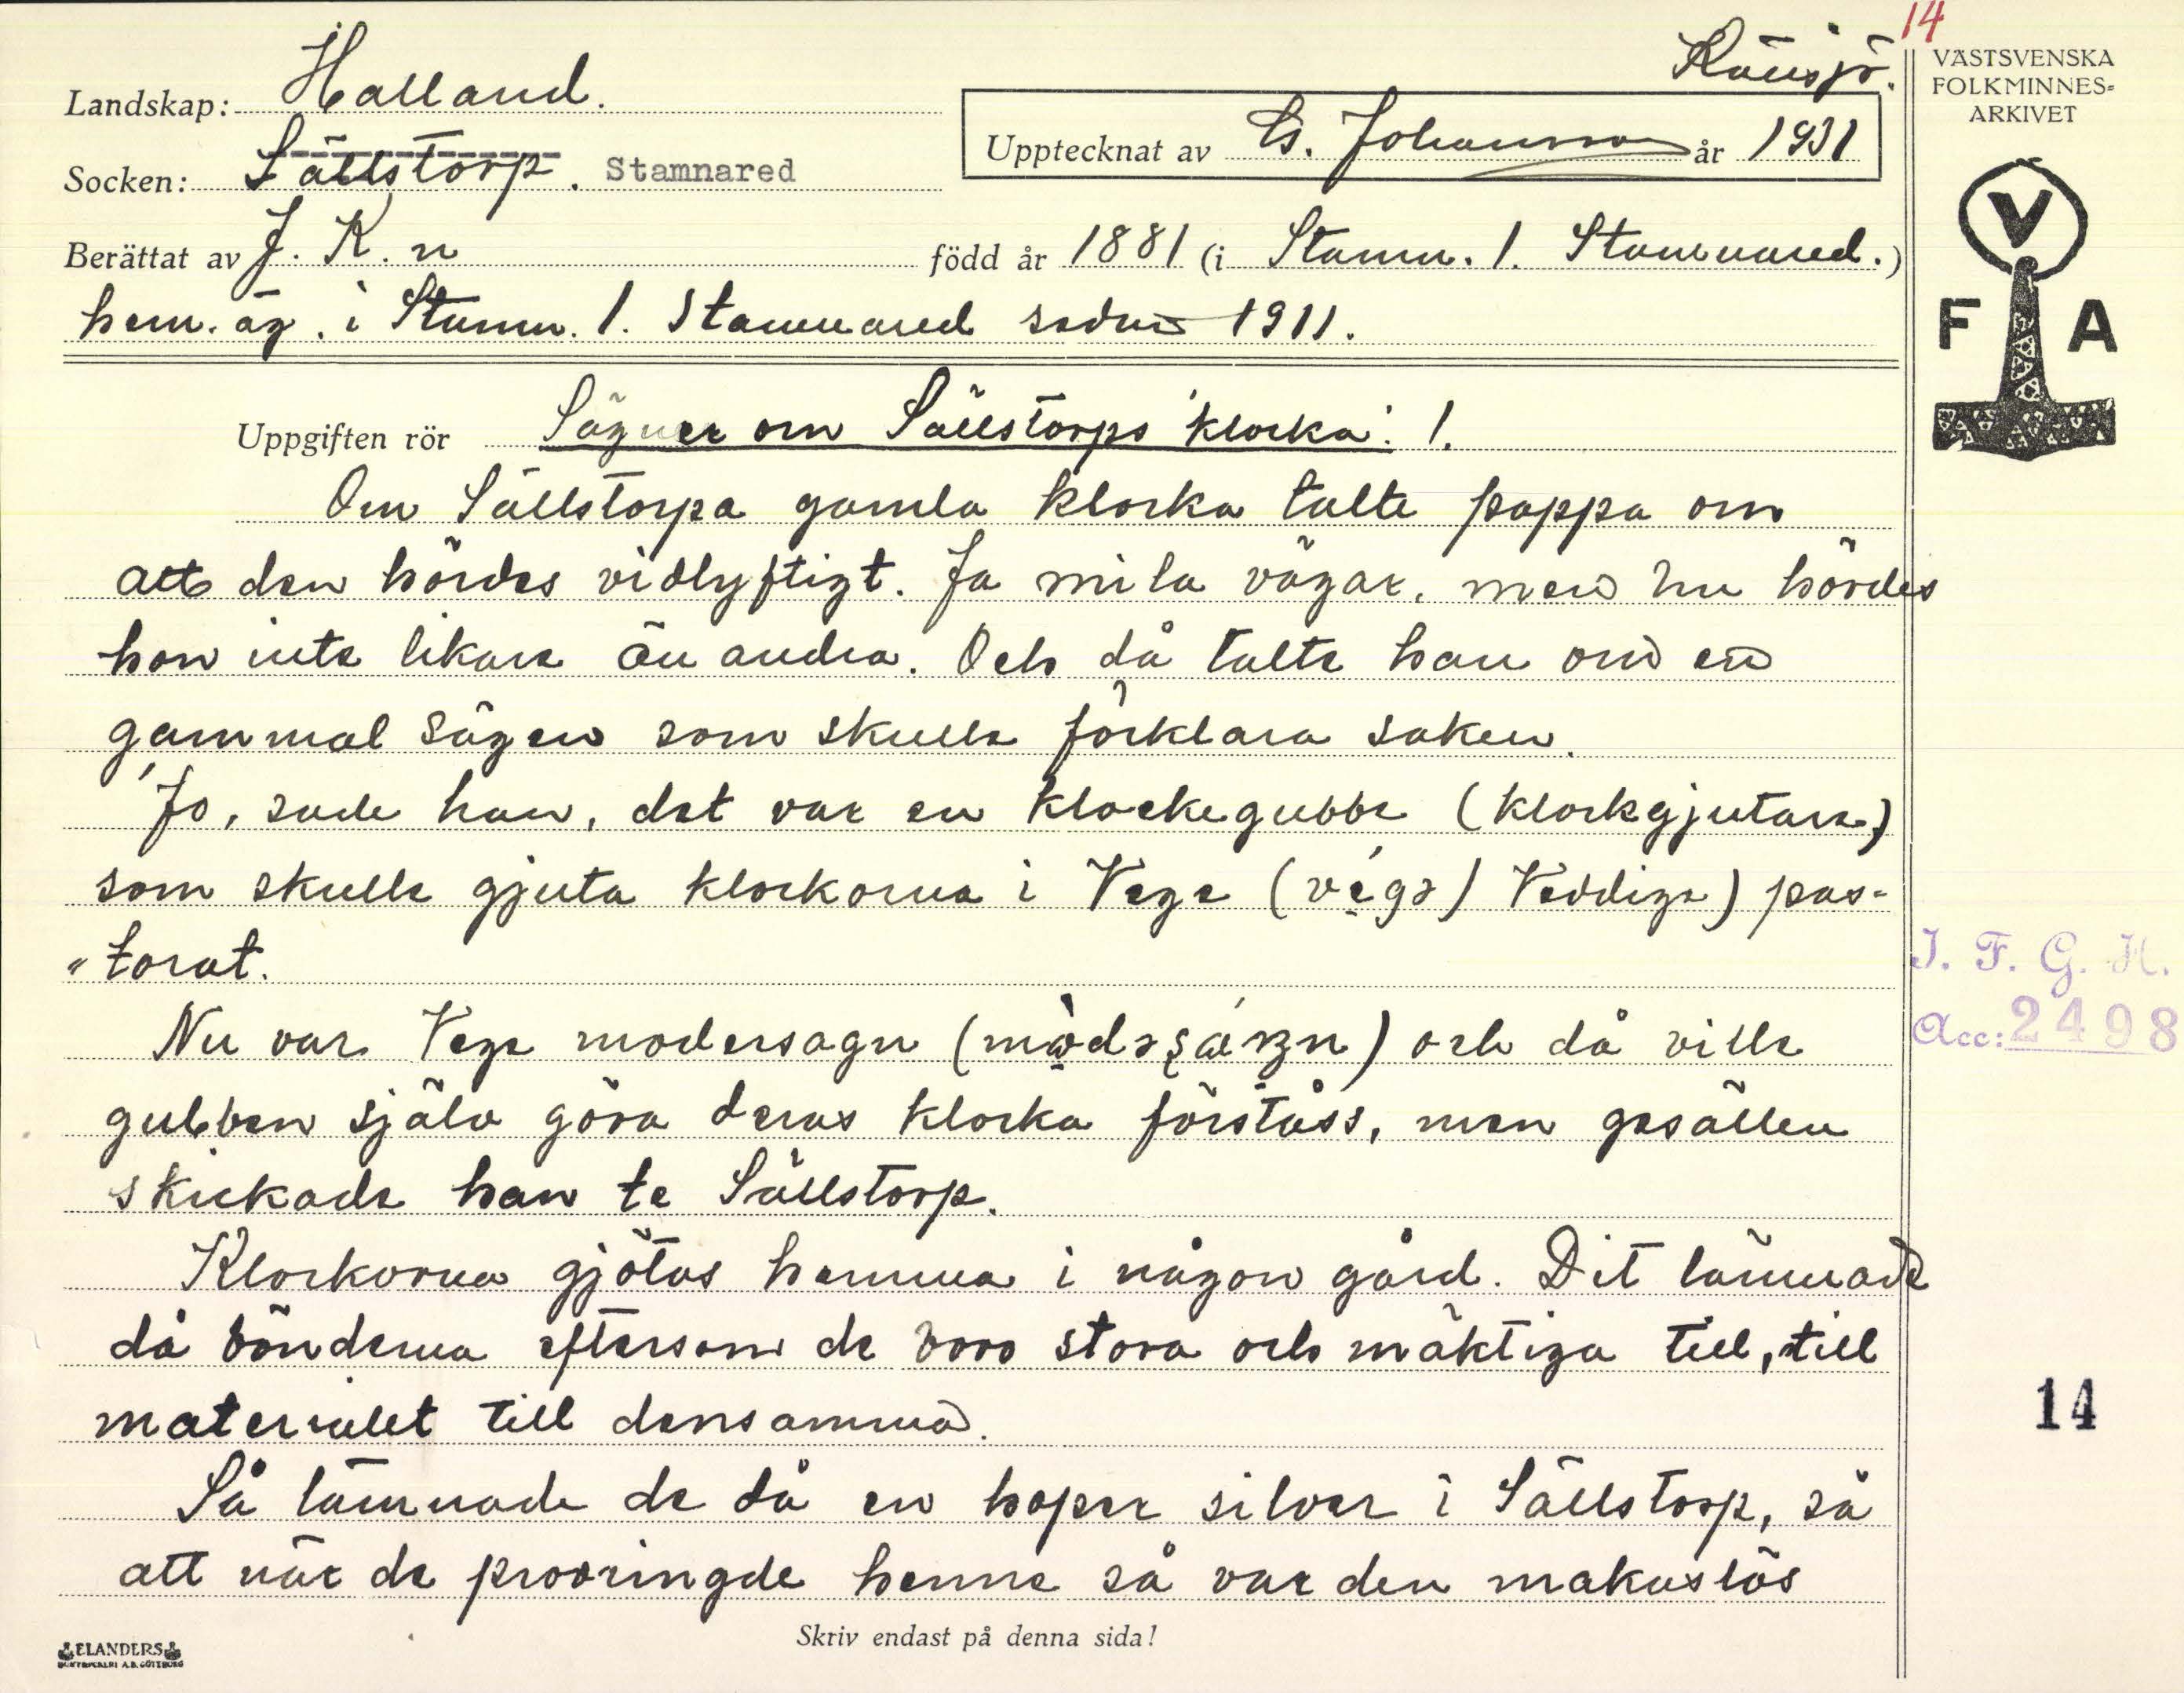 14
Landskap: Halland.
Socken: Sällstorp. Stamnared
Upptecknat av G. Johansson år 1931
VÄSTSVENSKA
FOLKMINNES-
ARKIVET
V
F A
Berättat av J. K. n född år 1881 (i Stamn. 1. Stamnared.)
hem. äg. i Stamn. 1. Stamnared sedan 1911.
Uppgiften rör Sägner om Sällstorps klocka. 1.
Om Sällstorpa gamla klocka talte pappa om
att den hördes vidlyftigt. Ja mila vägar, men nu hördes
hon inte likare än andra. Och då talte han om en
gammal sägen som skulle förklara saken.
Jo, sade han, det var en klockegubbe (klockgjutare)
som skulle gjuta klockorna i Vege (vègə) Veddige) pas-
"torat.
Nu var Vege modersagn och då ville
gubben själv göra deras klocka förståss, men gesällen
skickade han te Sällstorp.
Klockorna gjötos hemma i någon gård. Dit lämnade
då bönderna eftersom de voro stora och mäktiga till, till
materialet till densamma.
Så lämnade de då en hoper silver i Sällstorp, så
att när de provringde henne så var den makuslös
Skriv endast på denna sida!
J. F. G. H.
Acc: 2498
14
ELANDERS
BOKTRYCKERI A.B. GÖTEBORG